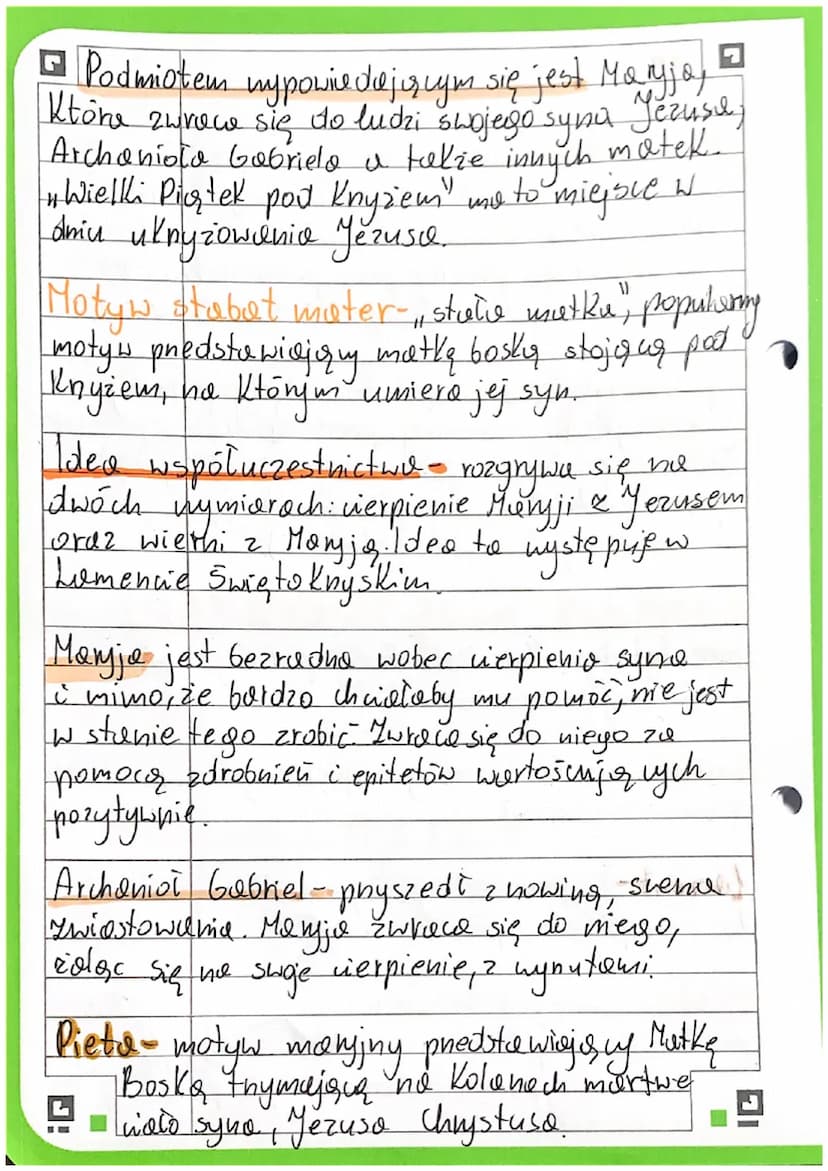 Podmiotem wypowiedającym się jest Maryja,
Która zwraca się do ludzi swojego syna Jezusa,
Archanioła Gabriela a także innych matek.
„Wielki Piątek pod Krzyżem" ma to miejsce w
dniu ukrzyżowania Jezusa.
Motyw stabat mater-„stała matka", popularny
motyw przedstawiający matkę boską stojącą pod
Krzyżem, na Którym umiera jej syn.
Idea współuczestnictwa- rozgrywa się na
dwóch wymiarach: cierpienie Maryji z Jezusem
oraz wierni z Maryją. Idea ta występuje w
Lamencie Świętokrzyskim.
Maryja jest bezradna wobec cierpienia syna
i mimo, że bardzo chciałaby mu pomóc, nie jest
w stanie tego zrobić. Zwraca się do niego za
pomocą zdrobnień i epitetów wartościujących
pozytywnie.
Archanioł Gabriel- przyszedł z nowiną, -scena
zwiastowania. Maryja zwraca się do niego,
żaląc się na swoje cierpienie, z wyrzutami.
Pieta- motyw maryjny przedstawiający Matkę
Boską trzymającą na Kolanach martwe
ciało syna, Jezusa Chrystusa.